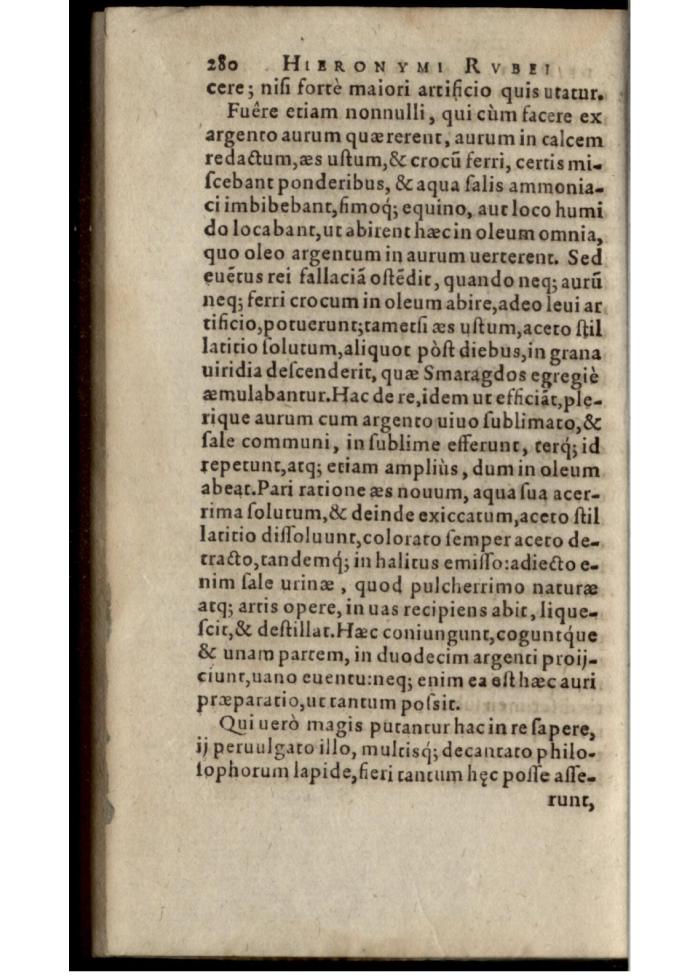 280 HIERONYMI RVBEI
cere; niſi fortè maiori artificio quis utatur.
Fuêre etiam nonnulli, qui cùm facere ex
argento aurum quærerent, aurum in calcem
redactum, æs uſtum, & crocū ferri, certis mi-
ſcebant ponderibus, & aqua ſalis ammonia-
ci imbibebant, fimoq́; equino, aut loco humi
do locabant, ut abirent hæc in oleum omnia,
quo oleo argentum in aurum uerterent. Sed
euētus rei fallaciā oſtēdit, quando neq; aurū
neq; ferri crocum in oleum abire, adeo leui ar
tificio, potuerunt; tametſi æs uſtum, aceto ſtil
latitio ſolutum, aliquot pòſt diebus, in grana
uiridia deſcenderit, quæ Smaragdos egregiè
æmulabantur. Hac de re, idem ut efficiāt, plę-
rique aurum cum argento uiuo ſublimato, &
ſale communi, in ſublime efferunt, terq́; id
repetunt, atq; etiam ampliùs, dum in oleum
abeat. Pari ratione æs nouum, aqua ſua acer-
rima ſolutum, & deinde exiccatum, aceto ſtil
latitio diſſoluunt, colorato ſemper aceto de-
tracto, tandemq́; in halitus emiſſo: adiecto e-
nim ſale urinæ, quod pulcherrimo naturæ
atq; artis opere, in uas recipiens abit, lique-
ſcit, & deſtillat. Hæc coniungunt, coguntq́ue
& unam partem, in duodecim argenti proij-
ciunt, uano euentu: neq; enim ea eſt hæc auri
præparatio, ut tantum poſsit.
Qui uerò magis putantur hac in re ſapere,
ij peruulgato illo, multisq́; decantato philo-
ſophorum lapide, fieri tantum hęc poſſe aſſe-
runt,